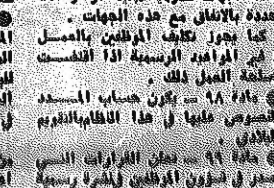 محددة بالاتفاق مع هذه الجهات .
كما يجوز تكليف الموظفين بالعمل
غير المواعيد الرسمية اذا اقتضت
مصلحة العمل ذلك .
مادة ٩٨ ــ يكون حساب المدد
المنصوص عليها في هذا النظام بالتقويم
مادة ٩٩ ــ تعلن القرارات التي
في شئون الموظفين رسمية